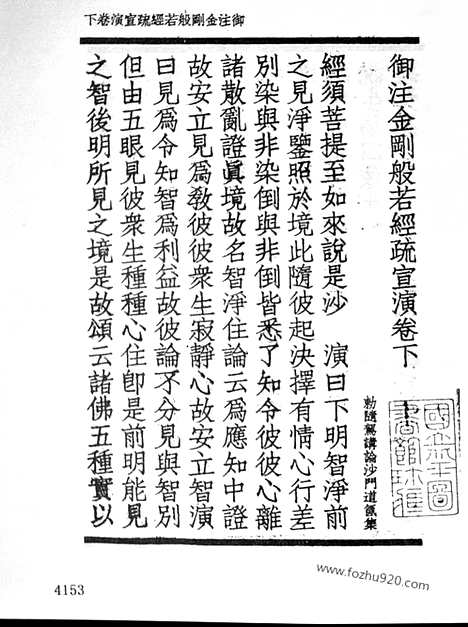 御注金剛般若經疏宣演卷下
御注金剛般若經疏宣演卷下
勑隨駕講論沙門道氤集
經須菩提至如來說是沙　演曰下明智淨前
之見淨鑒照於境此隨彼起決擇有情心行差
別染與非染倒與非倒皆悉了知令彼彼心離
諸散亂證眞境故名智淨住論云爲應知中證
故安立見爲敎彼彼衆生寂靜心故安立智演
曰見爲令知智爲利益故彼論不分見與智別
但由五眼見彼衆生種種心住卽是前明能見
之智後明所見之境是故頌云諸佛五種實以
國立
圖
書館
4153
www.fozhu920.com